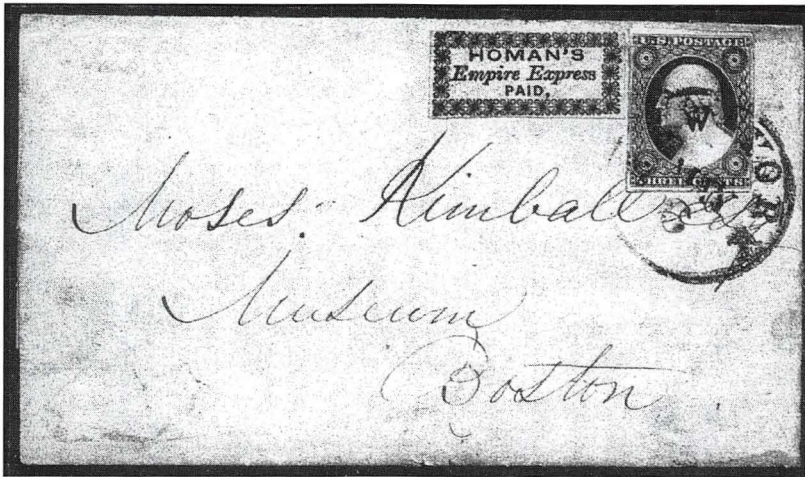 HOMAN'S
Empire Express
PAID,
U.S. POSTAGE
THREE CENTS
W
YORK
Moses. Kimball Esq
Museum
Boston